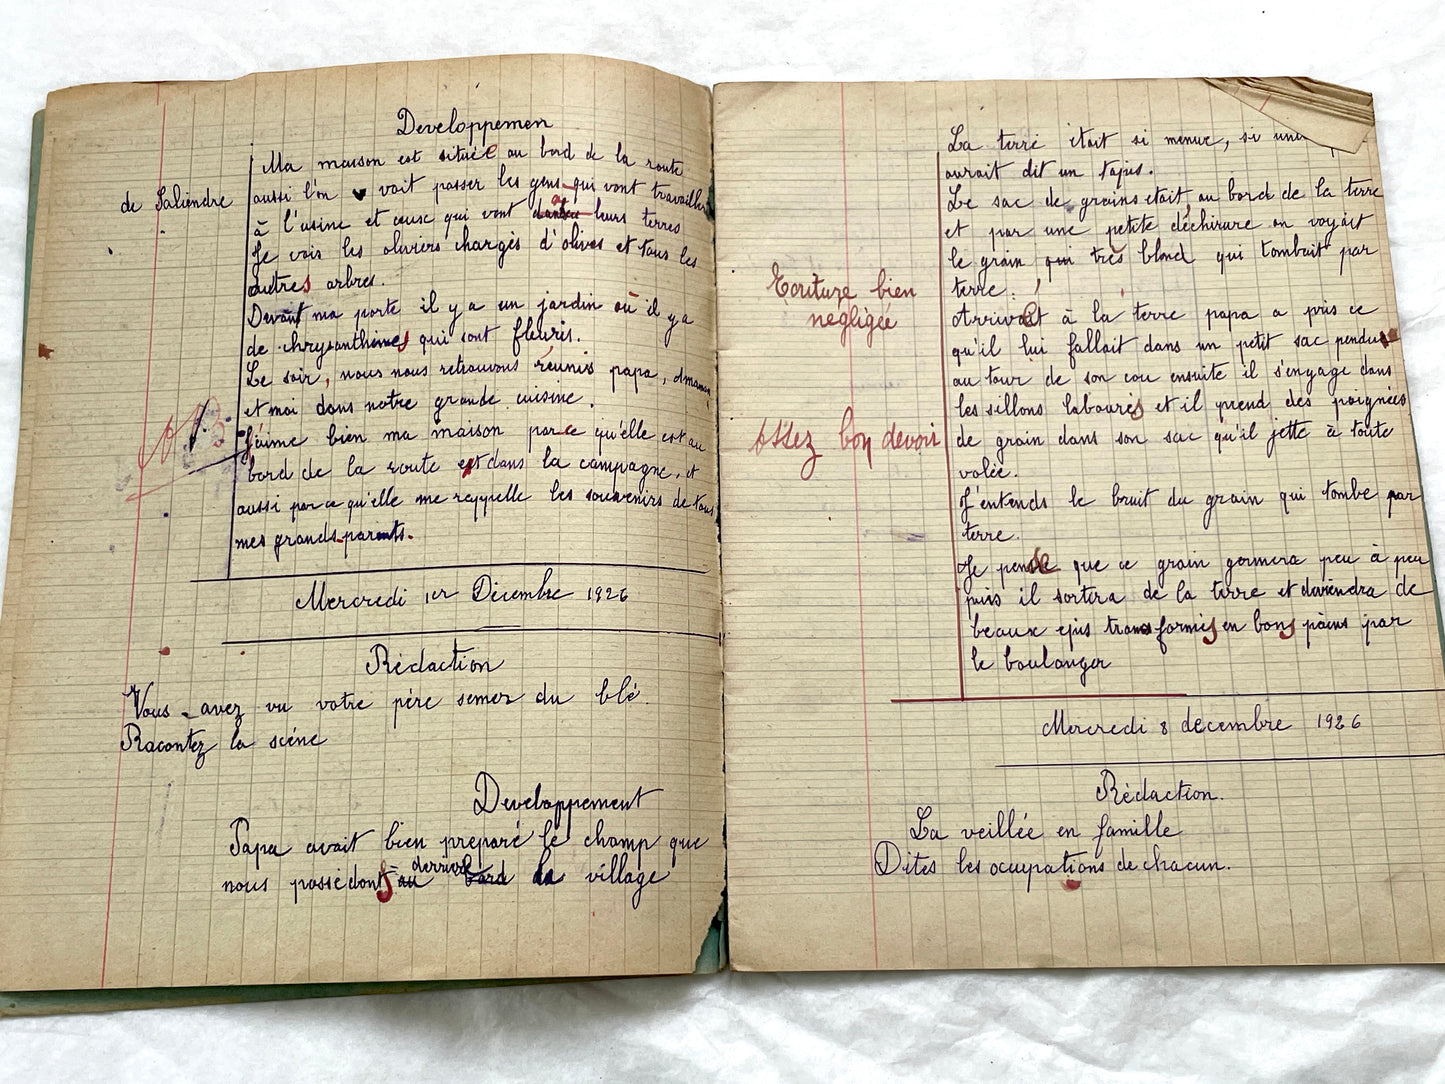 Developpemen
Ma maison est située au bord de la route
de Saliendre
aussi l'on voit passer les gens qui vont travailler
à l'usine et ceux qui vont leurs terres
Je vois les oliviers chargés d'olives et tous les
autres arbres.
Devant ma porte il y a un jardin où il y a
de chrysanthèmes qui sont fleuris.
Le soir, nous nous retrouvons réunis papa, maman
et moi dans notre grande cuisine.
J'aime bien ma maison parce qu'elle est au
bord de la route et dans la campagne, et
aussi parce qu'elle me rappelle les souvenirs de tous
mes grands-parents.
Mercredi 1er Décembre 1926
Rédaction
Vous avez vu votre père semer du blé.
Racontez la scène
Developpement
Papa avait bien preparé le champ que
nous possédons au derrière bord la village
La terre était si menue, si un
aurait dit un tapis.
Le sac de grains était au bord de la terre
et par une petite déchirure on voyait
le grain qui très blond qui tombait par
terre.
Ecriture bien
négligée
Arrivé à la terre papa a pris ce
qu'il lui fallait dans un petit sac pendu
au tour de son cou ensuite il s'engage dans
les sillons labourés et il prend des poignées
Assez bon devoir
de grain dans son sac qu'il jette à toute
volée.
J'entends le bruit du grain qui tombe par
terre.
Je pense que ce grain germera peu à peu
puis il sortira de la terre et deviendra de
beaux épis transformés en bons pains par
le boulanger
Mercredi 8 decembre 1926
Rédaction.
La veillée en famille
Dites les ocupations de chacun.